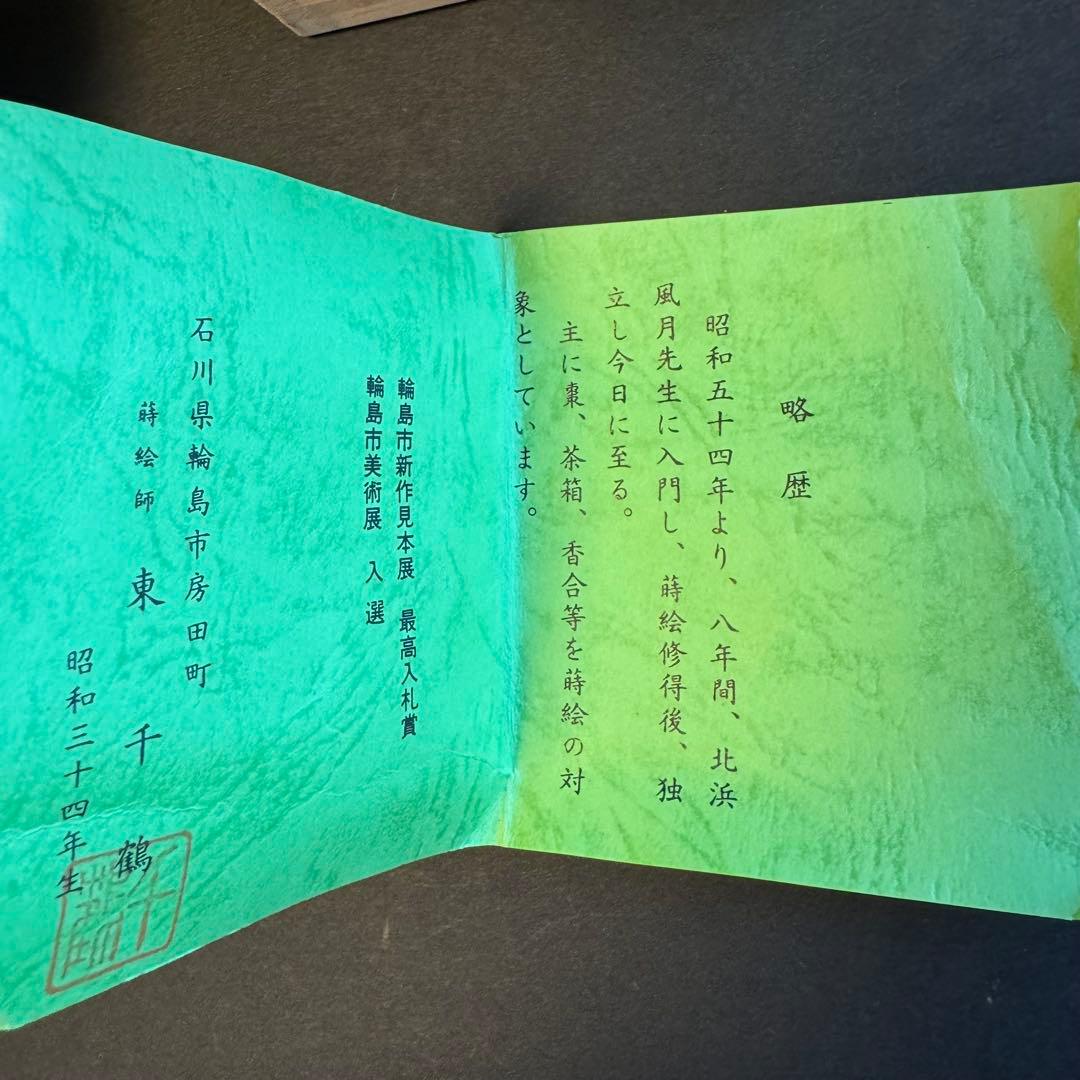 略歴
昭和五十四年より、八年間、北浜
風月先生に入門し、蒔絵修得後、独
立し今日に至る。
主に棗、茶箱、香合等を蒔絵の対
象としています。
輪島市新作見本展 最高入札賞
輪島市美術展 入選
石川県輪島市房田町
蒔絵師 東千鶴
昭和三十四年生
千鶴